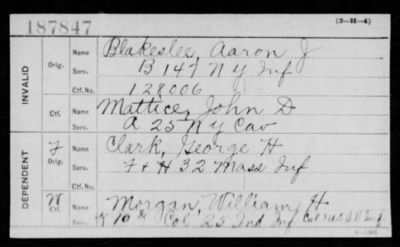 187847
(3-H-4)
INVALID
Orig. Name Blakeslee, Aaron J
Serv. B 147 N Y Inf
Ctf. No. 128006
Ctf. Name Mattice, John D
Serv. A 25 N Y Cav
DEPENDENT
F Orig. Name Clark, George H
Serv. F + H 32 Mass Inf
W Ctf. Name Morgan, William H
Serv. Col 25 Ind Inf